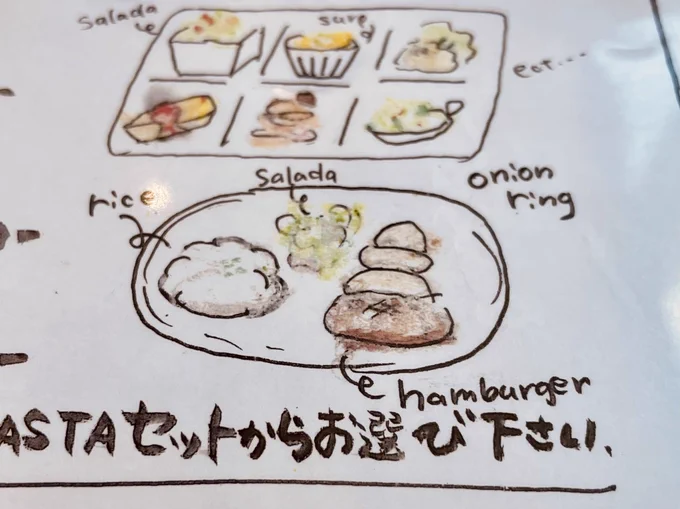 Salada
sured
eat...
Salada
onion
ring
rice
hamburger
ASTAセットからお選び下さい。